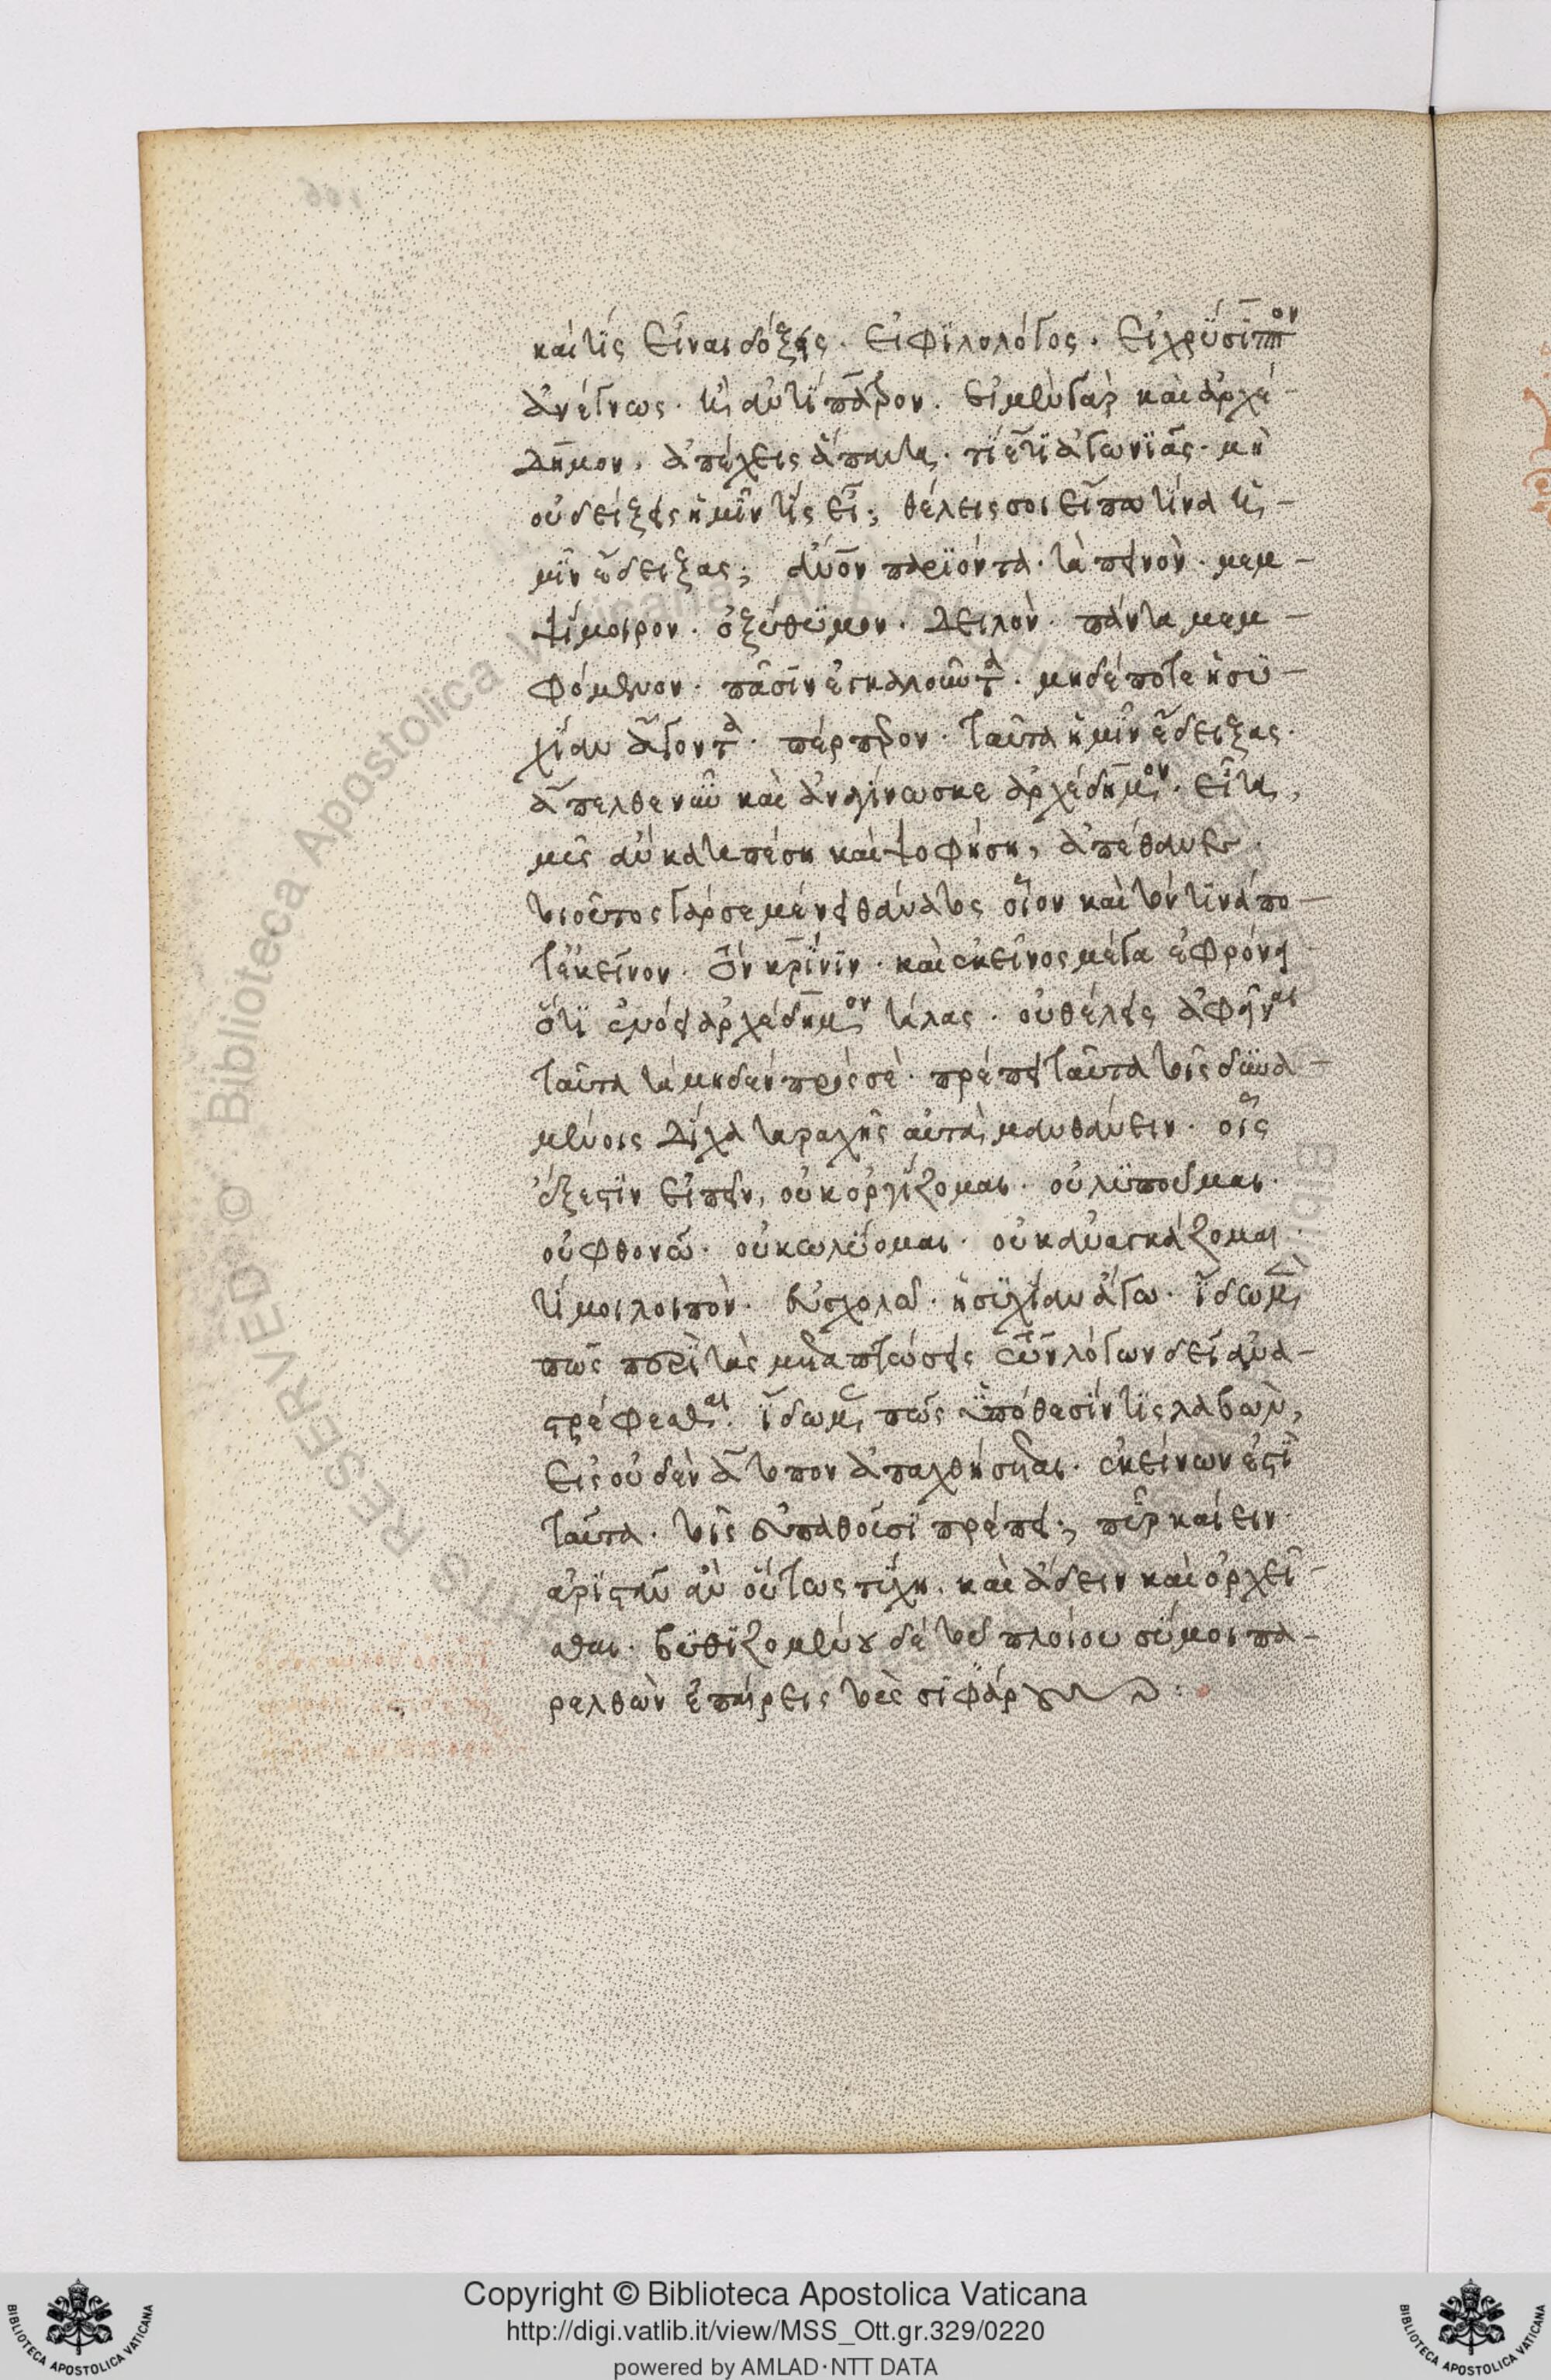 καί τις εἶναι δόξῃς. εἰ φιλολόγος. εἰ χρύσιππον
ἀνέγνως. καὶ ἀντίπατρον. εἰ μὲν γὰρ καὶ ἀρχέ-
δημον, ἀπέχεις ἅπαντα. τί ἔτι ἀγωνιᾷς. μὴ
οὐ δείξῃς ἡμῖν τίς εἶ; θέλεις σοι εἴπω τίνα ἡ-
μῖν ἔδειξας; ἄνθρωπον παριόντα. ταπεινόν. μεμ-
ψίμοιρον. ὀξύθυμον. δειλόν. πάντα μεμ-
φόμενον. πᾶσιν ἐγκαλοῦντα. μηδέποτε ἡσυ-
χίαν ἄγοντα. πέρπερον. ταῦτα ἡμῖν ἔδειξας.
ἄπελθε νῦν καὶ ἀναγίνωσκε ἀρχέδημον. εἶτα,
μῦς ἂν καταπέσῃ καὶ ψοφήσῃ, ἀπέθανες.
τοιοῦτος γάρ σε μένει θάνατος οἷον καὶ τόν τινά πο-
τ' ἐκεῖνον. τὸν κρίνιν. καὶ ἐκεῖνος μέγα ἐφρόνει
ὅτι ἐνόει ἀρχέδημον τάλας. οὐ θέλεις ἀφεῖναι
ταῦτα τὰ μηδὲν πρὸς σέ. πρέπει ταῦτα τοῖς δυνα-
μένοις δίχα ταραχῆς αὐτὰ μανθάνειν. οἷς
ἔξεστιν εἰπεῖν, οὐκ ὀργίζομαι. οὐ λυποῦμαι.
οὐ φθονῶ. οὐ κωλύομαι. οὐκ ἀναγκάζομαι.
τί μοι λοιπόν. εὐσχολῶ. ἡσυχίαν ἄγω. ἴδωμεν
πῶς περὶ τὰς μεταπτώσεις τῶν λόγων δεῖ ἀνα-
στρέφεσθαι. ἴδωμεν πῶς ὑπόθεσίν τις λαβών,
εἰς οὐδὲν ἄτοπον ἀπαχθήσεται. ἐκείνων ἐστὶ
ταῦτα. τοῖς εὐπαθοῦσι πρέπει; πῦρ καίειν
ἀριστᾶν ἂν οὕτως τύχῃ. καὶ ἄδειν καὶ ὀρχεῖ-
σθαι. βυθιζομένου δὲ τοῦ πλοίου σύ μοι πα-
ρελθὼν ἐπαίρεις τοὺς σιφάρους
Copyright © Biblioteca Apostolica Vaticana
http://digi.vatlib.it/view/MSS_Ott.gr.329/0220
powered by AMLAD·NTT DATA